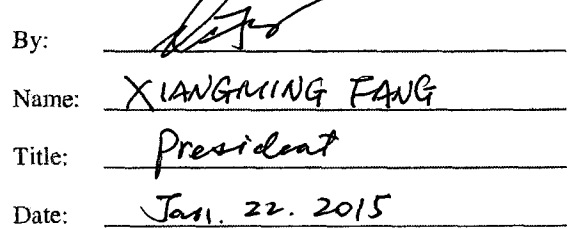 By:
Name: XIANGMING FANG
Title: President
Date: Jan. 22. 2015